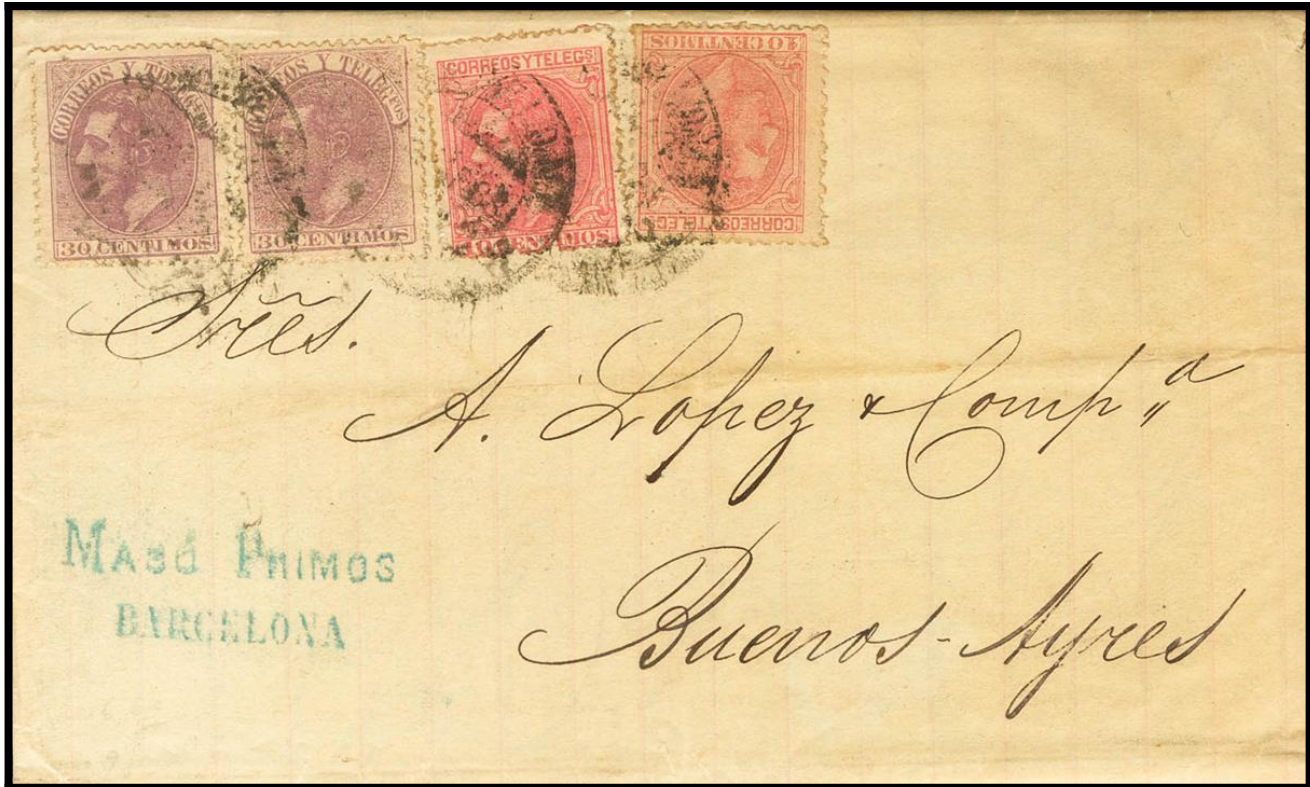 CORREOS Y TELEG
30 CENTIMOS
CORREOS Y TELEGFOS
30 CENTIMOS
CORREOS Y TELEGS
10 CENTIMOS
CORREOS Y TELEGS
10 CENTIMOS
Sr̃es.
A. Lopez & Comp.ª
Buenos-Ayres
MASÓ PRIMOS
BARCELONA